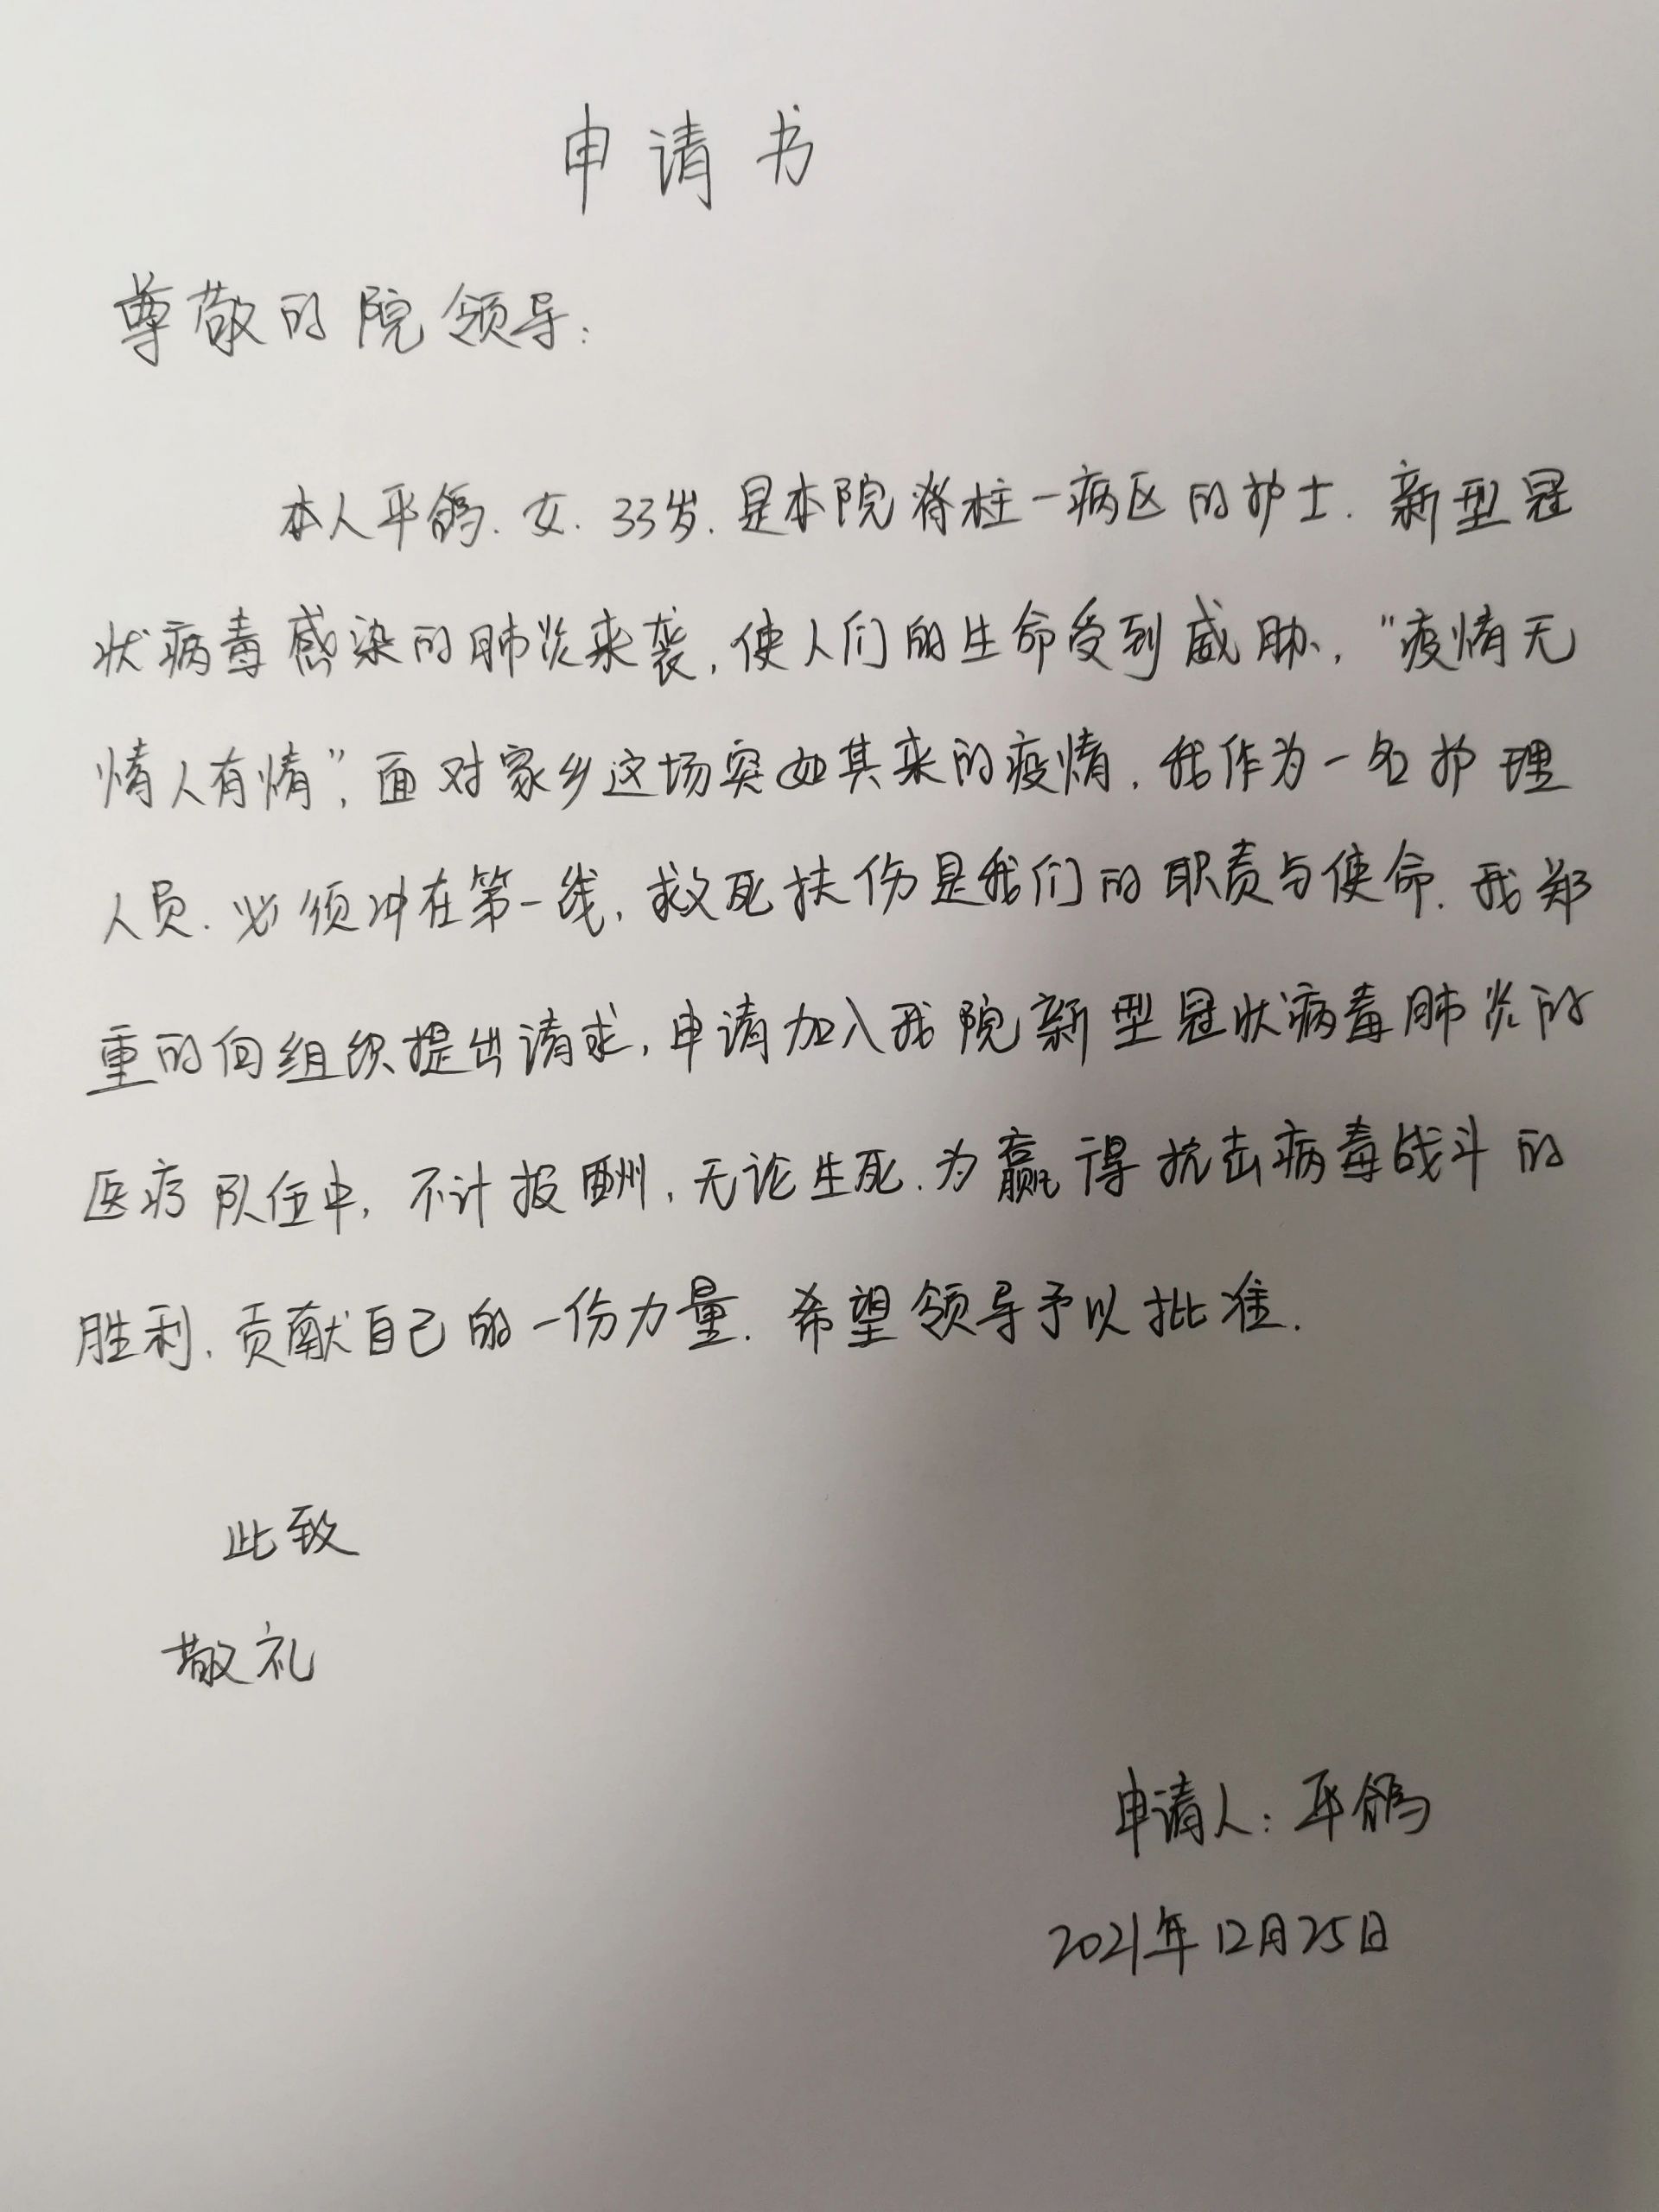 申请书
尊敬的院领导:
本人平鸽.女.33岁.是本院脊柱一病区的护士.新型冠
状病毒感染的肺炎来袭,使人们的生命受到威胁,“疫情无
情人有情”,面对家乡这场突如其来的疫情,我作为一名护理
人员.必须冲在第一线,救死扶伤是我们的职责与使命.我郑
重的向组织提出请求,申请加入我院新型冠状病毒肺炎的
医疗队伍中,不计报酬,无论生死.为赢得抗击病毒战斗的
胜利,贡献自己的一份力量.希望领导予以批准.
此致
敬礼
申请人:平鸽
2021年12月25日